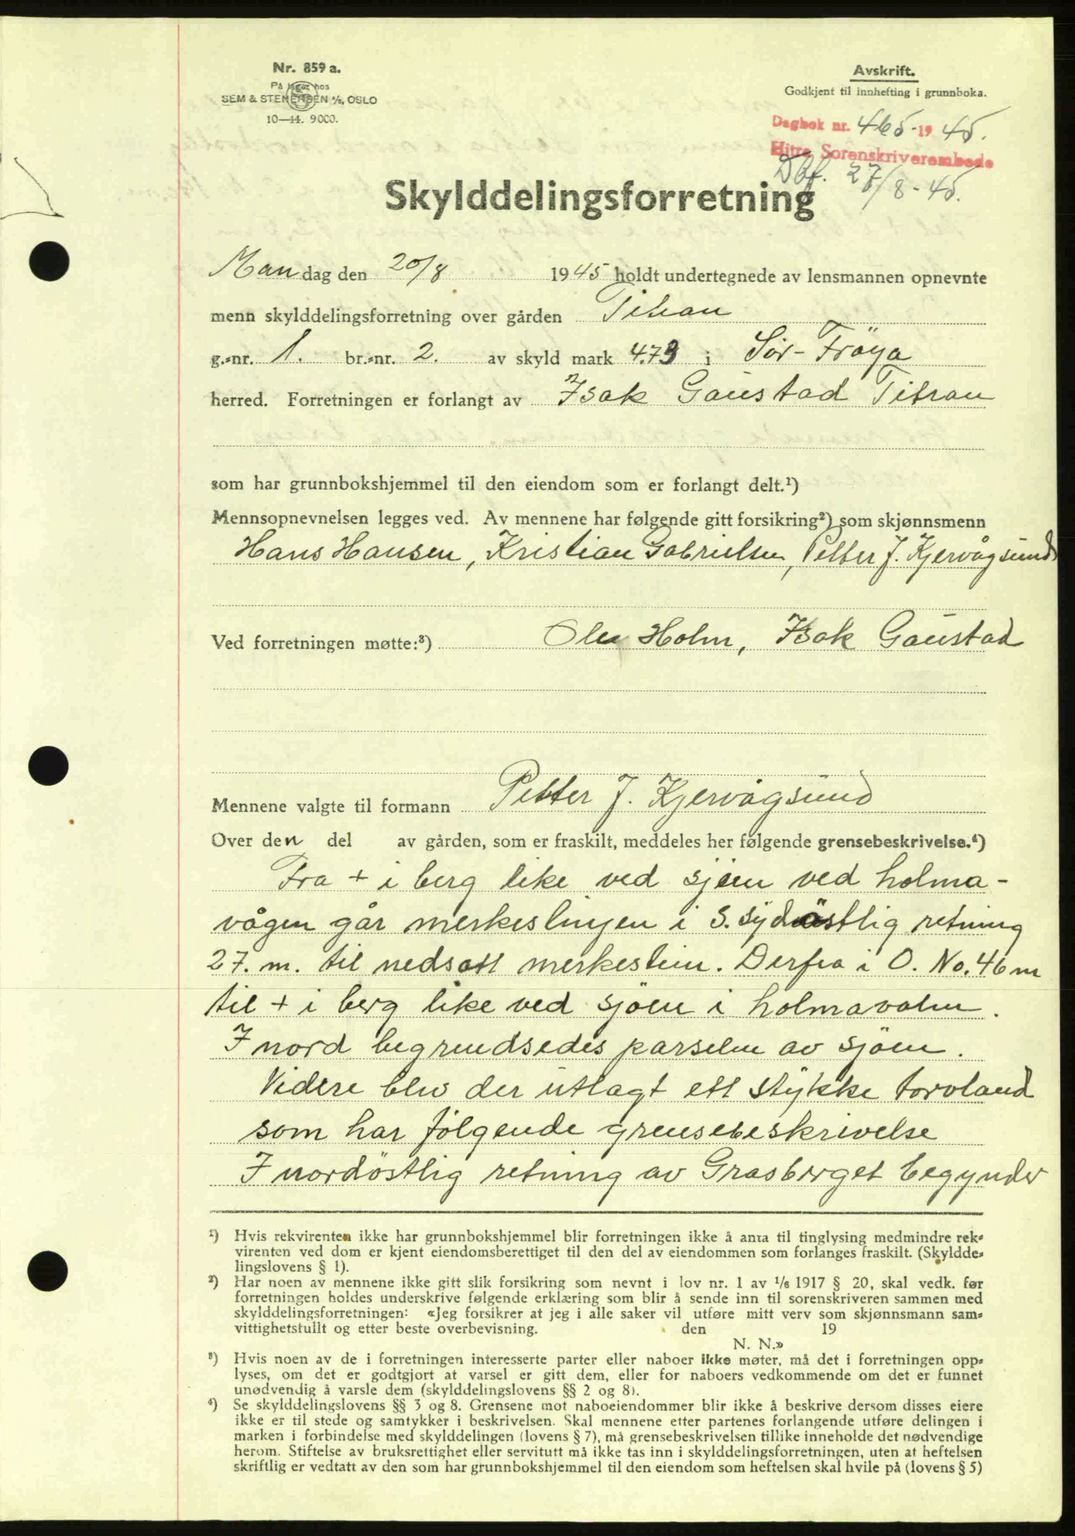 Nr. 859 a.
På lager hos
SEM & STENERSEN A/S, OSLO
10—44. 9000.
Avskrift.
Godkjent til innhefting i grunnboka.
Dagbok nr. 465-1945.
Hitra Sorenskriverembede
Dbf. 27/8-45.
Skylddelingsforretning
Mandag den 20/8 1945 holdt undertegnede av lensmannen opnevnte
menn skylddelingsforretning over gården Titran
g.-nr. 1. br.-nr. 2. av skyld mark 4.73 i Sör-Fröya
herred. Forretningen er forlangt av Isak Gaustad Titran
som har grunnbokshjemmel til den eiendom som er forlangt delt.¹)
Mennsopnevnelsen legges ved. Av mennene har følgende gitt forsikring²) som skjønnsmenn
Hans Hansen, Kristian Gabrielsen, Petter J. Kjervågsund
Ved forretningen møtte:³) Ole Holm, Isak Gaustad
Mennene valgte til formann Petter J. Kjervågsund
Over den del av gården, som er fraskilt, meddeles her følgende grensebeskrivelse.⁴)
Fra + i berg like ved sjöen ved holma-
vågen går merkeslinjen i S. sydöstlig retning
27. m. til nedsatt merkestein. Derfra i O. No. 46 m
til + i berg like ved sjöen i holmavalen.
I nord begrendsedes parselen av sjöen.
Videre blev der utlagt ett stykke torvland
som har følgende grensebeskrivelse
I nordöstlig retning av Grasberget begynder
¹) Hvis rekvirenten ikke har grunnbokshjemmel blir forretningen ikke å anta til tinglysing medmindre rek-
virenten ved dom er kjent eiendomsberettiget til den del av eiendommen som forlanges fraskilt. (Skyldde-
lingslovens § 1).
²) Har noen av mennene ikke gitt slik forsikring som nevnt i lov nr. 1 av 1/6 1917 § 20, skal vedk. før
forretningen holdes underskrive følgende erklæring som blir å sende inn til sorenskriveren sammen med
skylddelingsforretningen: «Jeg forsikrer at jeg i alle saker vil utføre mitt verv som skjønnsmann sam-
vittighetsfullt og etter beste overbevisning. den 19
N. N.»
³) Hvis noen av de i forretningen interesserte parter eller naboer ikke møter, må det i forretningen opp-
lyses, om det er godtgjort at varsel er gitt dem, eller for naboers vedkommende om det er funnet
unødvendig å varsle dem (skylddelingslovens §§ 2 og 8).
⁴) Se skylddelingslovens §§ 3 og 8. Grensene mot naboeiendommer blir ikke å beskrive dersom disses eiere
ikke er til stede og samtykker i beskrivelsen. Skal mennene etter partenes forlangende utføre delingen i
marken i forbindelse med skylddelingen (lovens § 7), må grensebeskrivelsen tillike inneholde det nødvendige
herom. Stiftelse av bruksrettighet eller servitutt må ikke tas inn i skylddelingsforretningen, uten at heftelsen
skriftlig er vedtatt av den som har grunnbokshjemmel til den eiendom som heftelsen skal hvile på (lovens § 5)